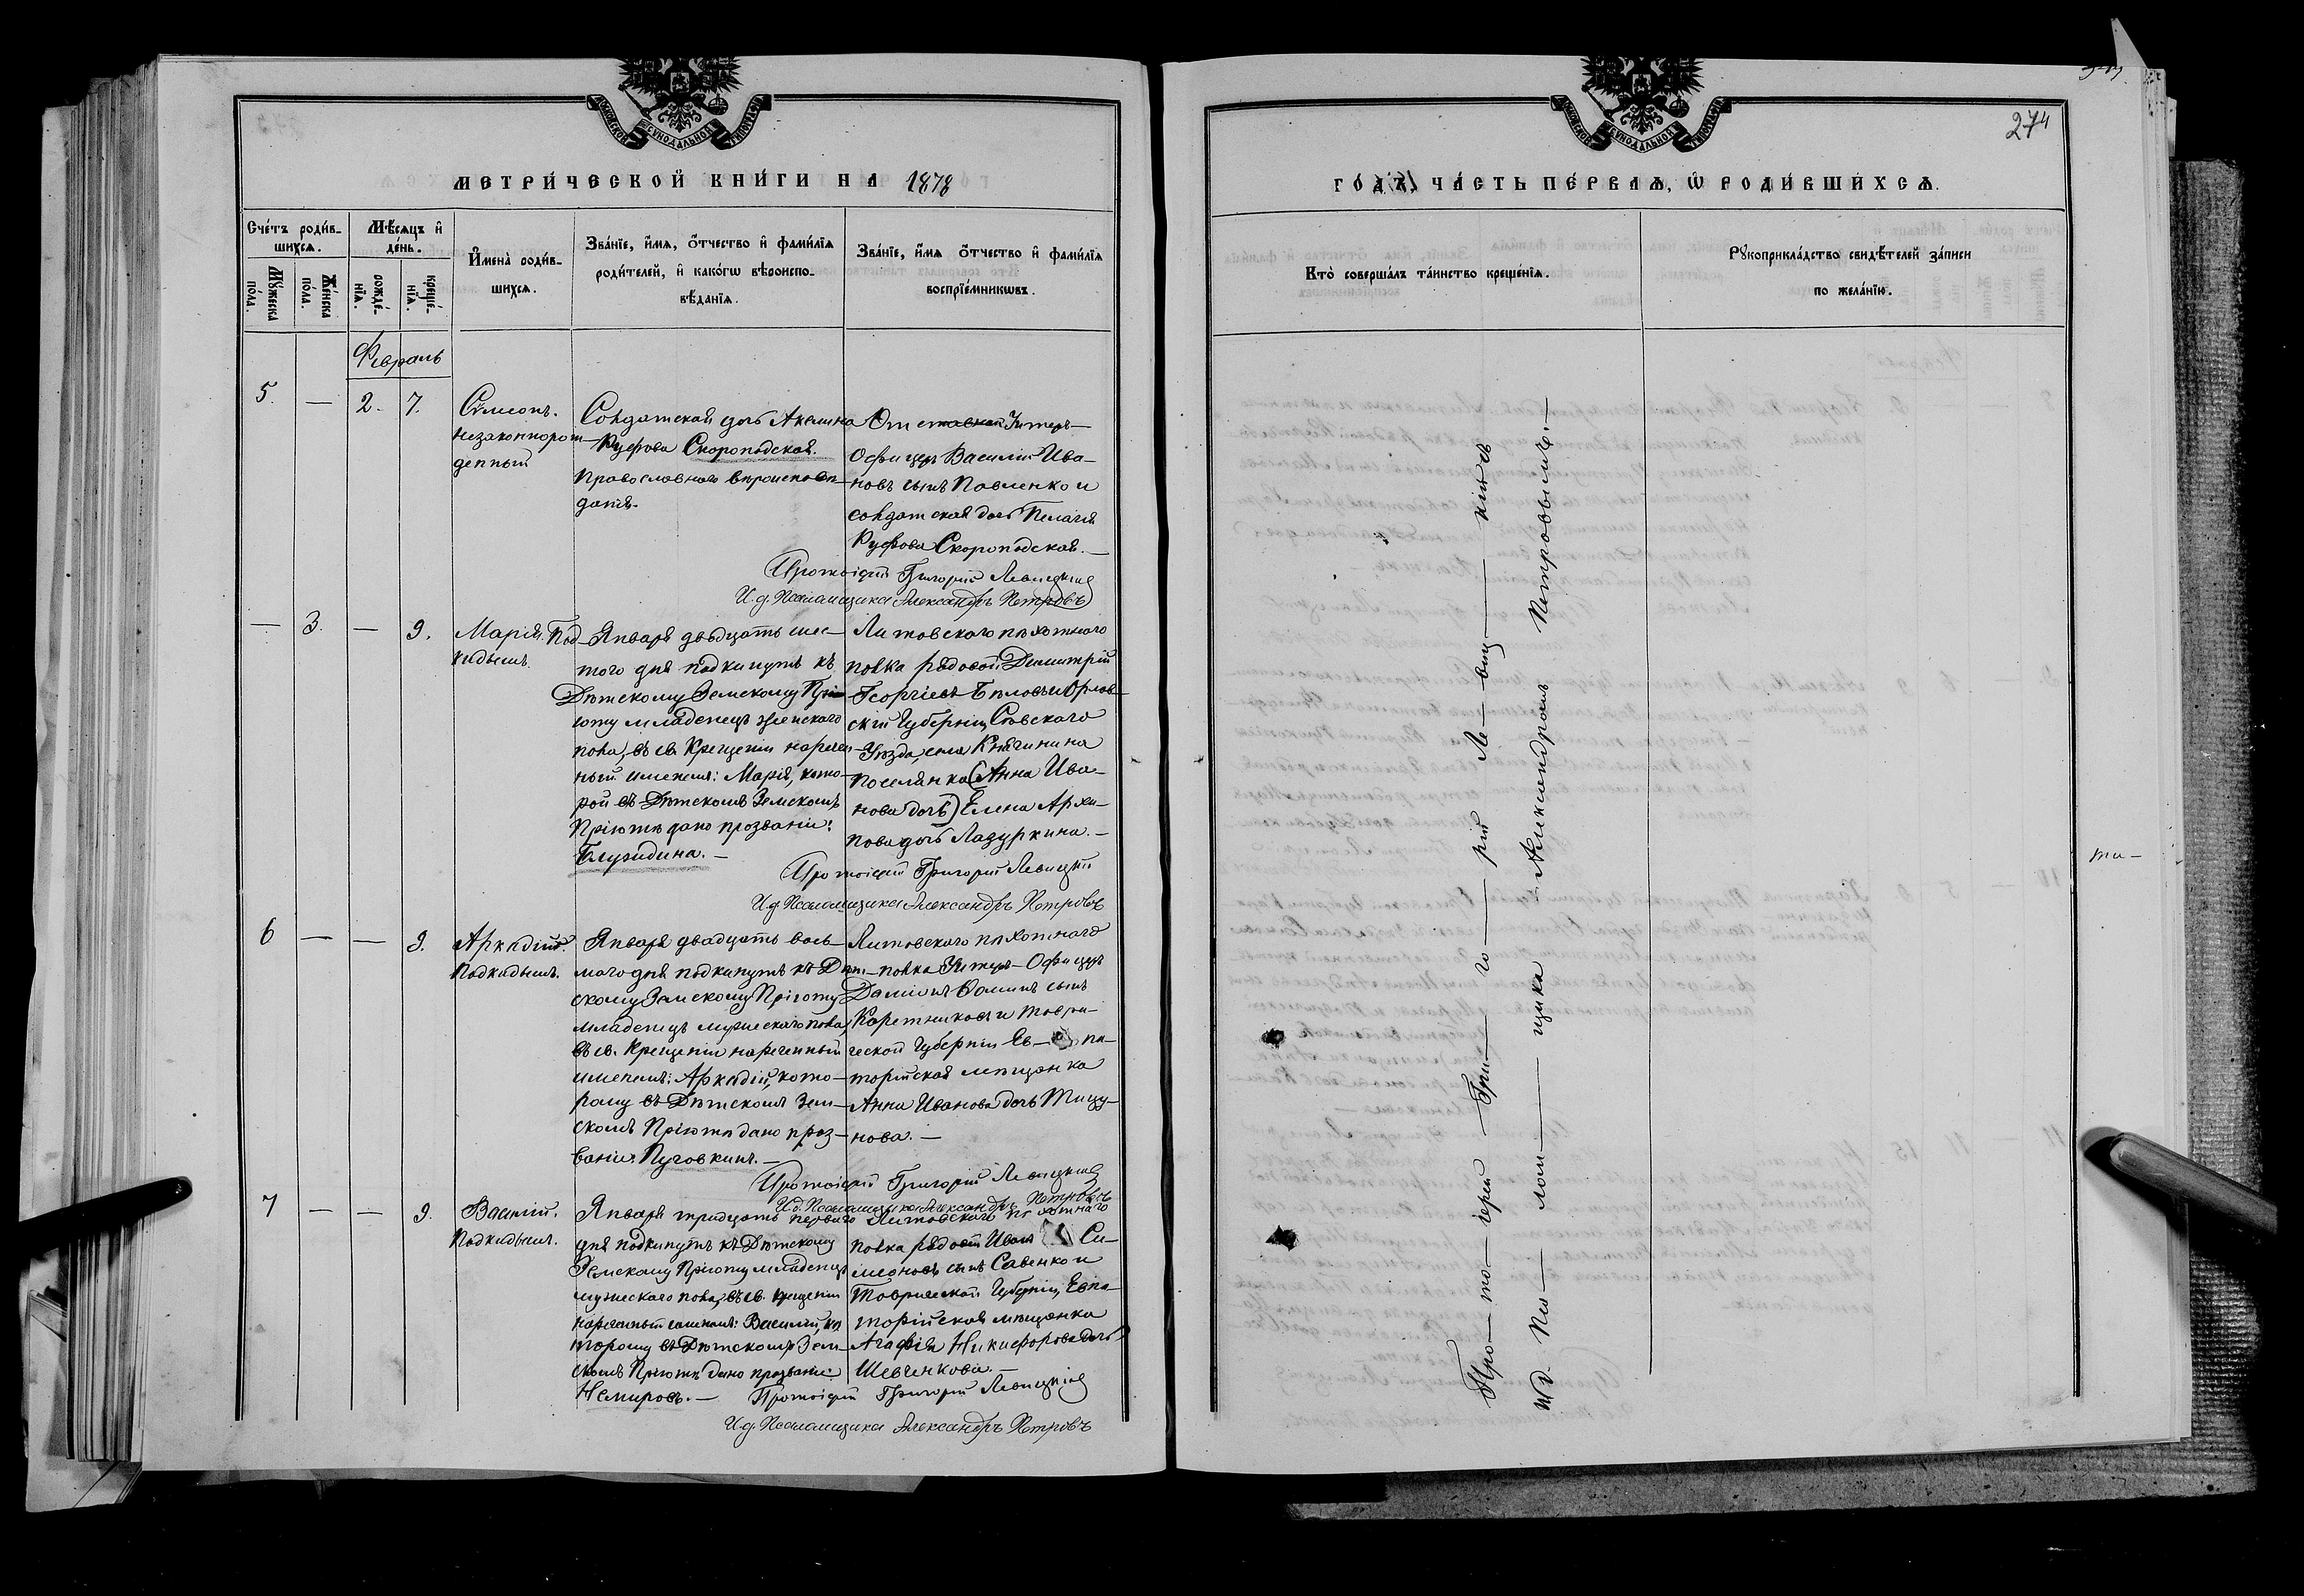 МЕТРИ́ЧЕСКОЙ КНИ́ГИ НА 1878
Сче́тъ роди́в-
шихсѧ.
Мѣ́сѧцъ и҆
день.
И҆мена̀ роди́в-
шихсѧ.
Зва́нїе, и҆́мѧ, ѻ҆́тчество и҆ фами́лїѧ
роди́телей, и҆ како́гѡ вѣроиспо-
вѣ́данїѧ.
Зва́нїе, и҆́мѧ ѻ҆́тчество и҆ фами́лїѧ
воспрїе́мникѡвъ.
Мꙋ́жеска
по́ла.
Же́нска
по́ла.
рожде́-
нїѧ.
креще́-
нїѧ.
Февраль
5. — 2. 7.
Сѵмеонъ.
незаконнорож-
денный
Солдатская дочь Акилина
Руфова Скороподская.
Православнаго вѣроисповѣ-
данія.
Отставной Унтеръ-
Офицеръ Василій Ива-
новъ сынъ Павленко и
солдатская дочь Пелагія
Руфова Скороподская. —
Протоіерей Григорій Левицкій
И. д. Псаломщика Александръ Петровъ
— 3. — 9.
Марія. Под-
кидышъ.
Января двадцать шес-
того дня подкинутъ къ
Дѣтскому Земскому Прі-
юту младенецъ женскаго
пола, въ св. Крещеніи наречен-
ный именемъ: Марія, кото-
рой въ Дѣтскомъ Земскомъ
Пріютѣ дано прозваніе:
Блужидина. —
Литовскаго пѣхотнаго
полка рядовой Димитрій
Георгіевъ Бѣловъ и Орлов-
ской Губерніи Сѣвскаго
Уѣзда, села Княгинина
поселянка (Анна Ива-
нова дочь) Елена Архи-
пова дочь Лазуркина. —
Протоіерей Григорій Левицкій
И. д. Псаломщика Александръ Петровъ
6 — — 9.
Аркадій.
Подкидышъ.
Января двадцать вось-
маго дня подкинутъ къ Дѣт-
скому Земскому Пріюту
младенецъ мужескаго пола,
въ св. Крещеніи нареченный
именемъ: Аркадій, кото-
рому въ Дѣтскомъ Зем-
скомъ Пріютѣ дано проз-
ваніе: Пуговкинъ. —
Литовскаго пѣхотнаго
полка Унтеръ-Офицеръ
Даміанъ Ѳоминъ сынъ
Каретниковъ и Таври-
ческой Губерніи Ев- па-
торійская мѣщанка
Анна Иванова дочь Тицу-
нова. —
Протоіерей Григорій Левицкій
И. д. Псаломщика Александръ Петровъ
7 — — 9.
Василій.
Подкидышъ.
Января тридцать перваго
дня подкинутъ къ Дѣтскому
Земскому Пріюту младенецъ
мужескаго пола, въ св. крещеніи
нареченный именемъ: Василій, ко-
торому въ Дѣтскомъ Зем-
скомъ Пріютѣ дано прозваніе
Немировъ. —
Литовскаго пѣхотнаго
полка рядовой Иванъ Си-
меоновъ сынъ Савенко и
Таврической Губерніи, Евпа-
торійская мѣщанка
Агафія Никифорова дочь
Шевченкова. —
Протоіерей Григорій Левицкій
И. д. Псаломщика Александръ Петровъ
274
ГО́ДА ЧА́СТЬ ПЕ́РВАѦ, Ѡ҆ РОДИ́ВШИХСѦ.
Кто̀ соверша́лъ та́инство креще́нїѧ.
Рꙋкоприкла́дство свидѣ́телей за́писи
по жела́нїю.
Про — то — іерей Гри — го — рій Ле — виц — кій съ
и. д. Пса — лом — щика Александромъ Петровымъ. —
ти —